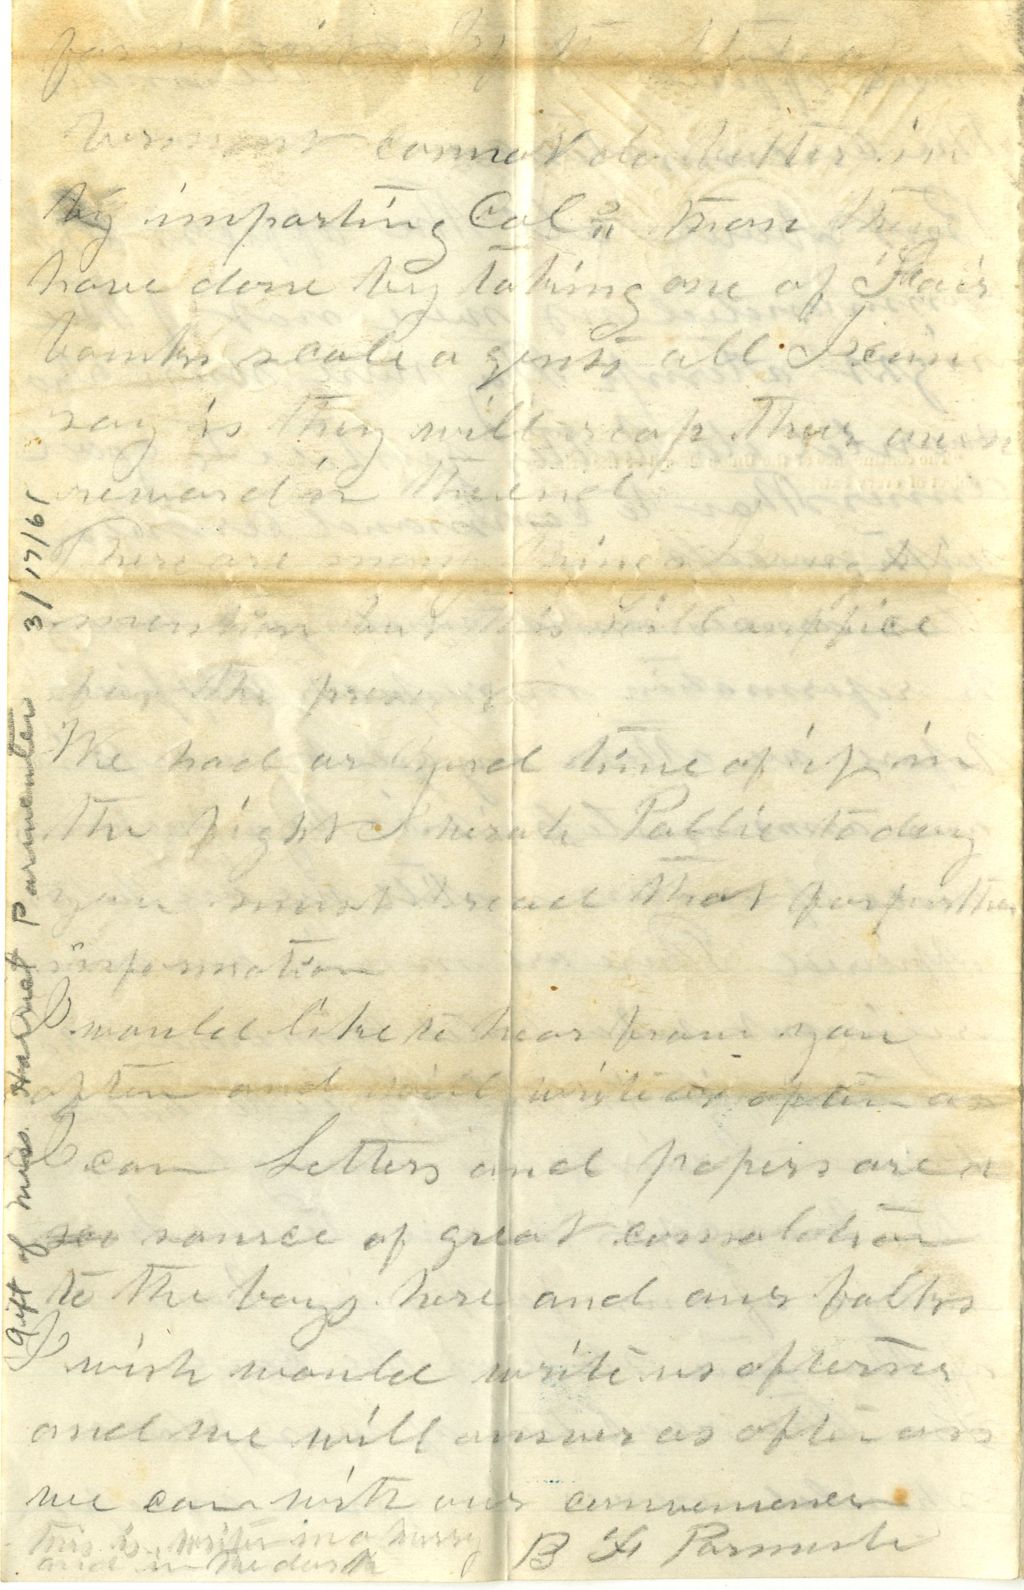 Vermont cannot do better in
by imparting Cols than they
have done by taking one of Fair
banks scale agents all I can
say is they will reap thier own
reward in the end
There are many things to
mention but this will suffice
for the present
We had a hard time of it in
the fight I wrote Pattie to day
you must read that for further
information
I would like to hear from you
often and will write as often as
I can Letters and papers are a
source of great consolation
to the boys here and our folks
I wish would write us oftener
and we will answer as often as
we can with our conveniences
B F Parmenter
this is writen in a hurry
and in the dark
Gift of Miss. Harriet Parmenter 3/17/61